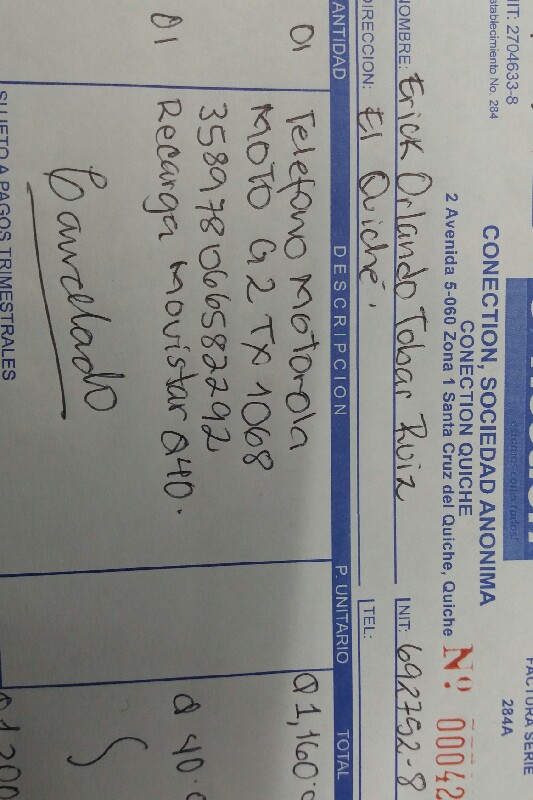 FACTURA SERIE
284A
estamos conectados!
NIT: 2704633-8
Establecimiento No. 284
CONECTION, SOCIEDAD ANONIMA
CONECTION QUICHE
2 Avenida 5-060 Zona 1 Santa Cruz del Quiche, Quiche
Nº 00042
NOMBRE: Erick Orlando Tobar Ruiz NIT: 692752-8
DIRECCION: El Quiché. TEL:
CANTIDAD DESCRIPCION P. UNITARIO TOTAL
01 Telefono Motorola Q1,160.0
MOTO G2 TX 1068
358978066582292
01 Recarga movistar Q40. Q 40.0
Cancelado
SUJETO A PAGOS TRIMESTRALES Q1200